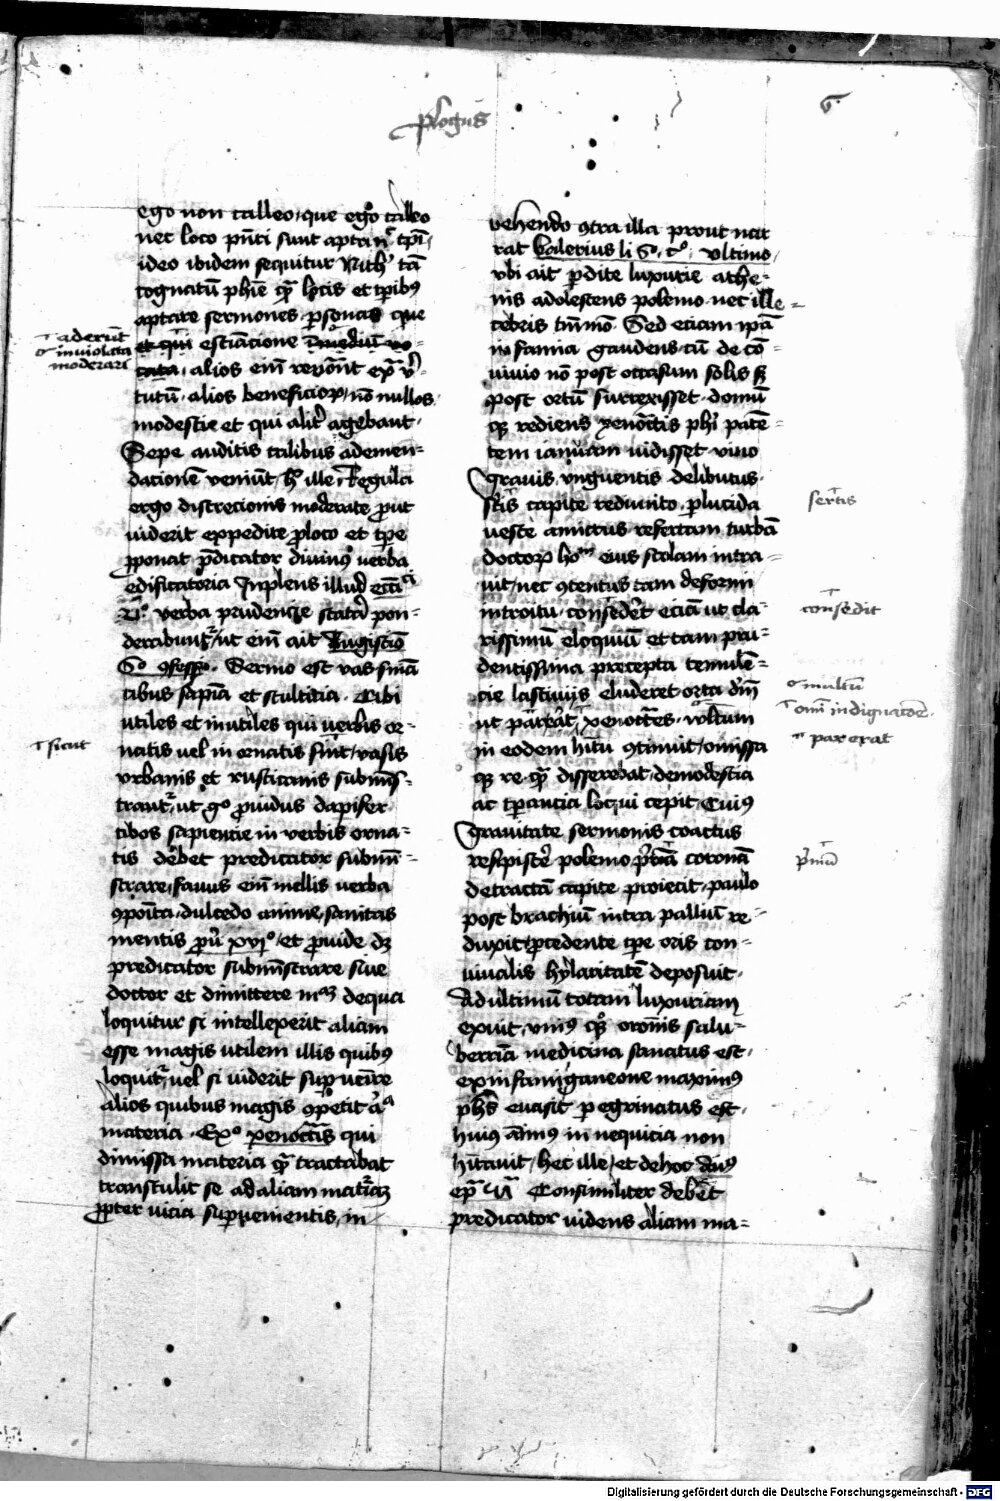 plogus
6
ego non calleo, que ego calleo
nec loco pñti sunt apta nc̄ tp̄i,
ideo ibidem sequitur Nichil tā
cognatū ph̄ie q̄ locis et tp̄ibꝫ
aptare sermones psonas que
aderūt
inviolata
moderari
et qui estiācione
alios em̄ vr̄
tutū, alios beneficioꝝ, nō nullos
modestie et qui alit̄ agebant.
Sepe auditis talibus ad emen-
dacionē veniūt, hc̄ ille, Regula
ergo discrecionis moderate put
viderit expedire ploco et tpe
pponat p̄dicator divinꝰ verba
edificatoria Inplens illud ecc̄i
verba prudencie statā pon-
derabunt̄, ut em̄ ait Augustinꝰ
5º ꝯfess. Sermo est vas
cibus sapīa et stulticia. Cibi
utiles et inutiles qui verbis or-
natis vel in ornatis sint, vasis
sicut
vrbanis et rusticanis submis-
trant̄, ut gº pvidus dapifer
cibos sapiencie in verbis orna-
tis debet predicator submi-
strare, favus em̄ mellis verba
ꝯpoīta, dulcedo anime, sanitas
mentis pū xvjº, et pvide dꝫ
predicator subministrare sive
doctor et dimittere mᵃꝫ de qua
loquitur si intellexerit aliam
esse magis utilem illis quibꝫ
loquit̄, vel si viderit supvenire
alios quibus magis ꝯpetit ā
materia. Exº xenocratis qui
dimissa materia q̄ tractabat
transtulit se ad aliam matiaꝫ
ppter vicia supvenientis, in
vehendo ꝯtra illa prout nar
rat Valerius li 6º. cº. ultimo,
vbi ait pdite luxurie athe-
nis adolescens polemo nec ille-
cebris tm̄mō. Sed eciam ip̄a
infamia gaudens cū de cō-
vivio nō post occasum solis sꝫ
post ortū surrexisset. domū
qꝫ rediens xenocratis phi paten-
tem ianuam vidisset vino
gravis, unguentis delibutus.
sertis
capite redimito. plucida
veste amictus refertam turbā
doctoꝝ hoīm eius scolam intra-
vit, nec ꝯtentus tam deformi
consedit
introitu, eciā ut cla-
rissimū eloquiū et tam pru-
dentissima precepta temulē-
cie lasciviis eluderet orta
multū
omī indignacōe.
par erat
ut xenocrates. voltum
in eodem hītu ꝯtinuit, omissa
qꝫ re q̄ disserebat, de modestia
ac tpancia loqui cepit Cuiꝰ
gravitate sermonis coactus
resipiscere polemo coronā
pimū
detractā capite proiecit, paulo
post brachiū intra palliū re-
duxit, pcedente tpe oris con-
vivalis hylaritatē deposuit.
Ad ultimū totam luxuriam
exuit, vniꝰ qꝫ oronis salu-
berria medicina sanatus est,
ex infami ganeone maximꝰ
phs evasit pegrinatus est
huiꝰ aīmꝰ in nequicia non
hītavit, hec ille, et de hoc
Consimiliter debet
predicator videns aliam ma-
Digitalisierung gefördert durch die Deutsche Forschungsgemeinschaft - DFG